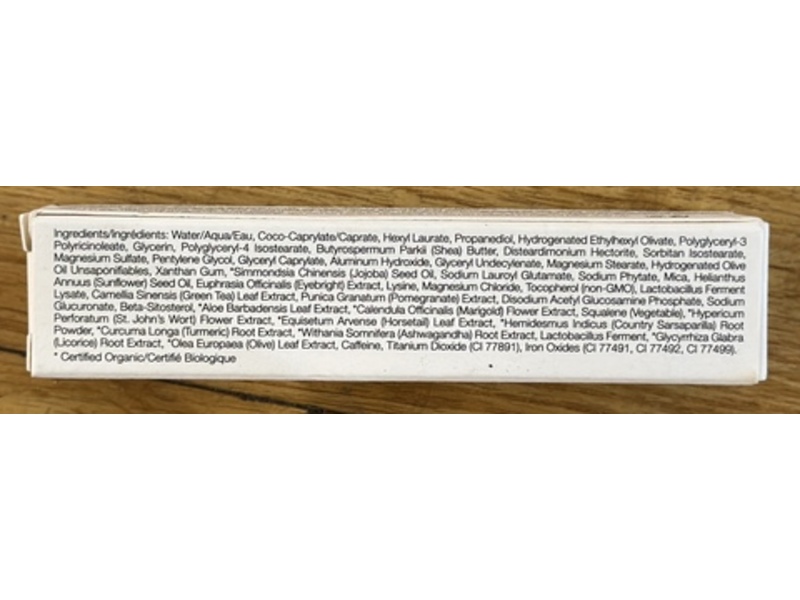 Ingredients/Ingrédients: Water/Aqua/Eau, Coco-Caprylate/Caprate, Hexyl Laurate, Propanediol, Hydrogenated Ethylhexyl Olivate, Polyglyceryl-3
Polyricinoleate, Glycerin, Polyglyceryl-4 Isostearate, Butyrospermum Parkii (Shea) Butter, Disteardimonium Hectorite, Sorbitan Isostearate,
Magnesium Sulfate, Pentylene Glycol, Glyceryl Caprylate, Aluminum Hydroxide, Glyceryl Undecylenate, Magnesium Stearate, Hydrogenated Olive
Oil Unsaponifiables, Xanthan Gum, *Simmondsia Chinensis (Jojoba) Seed Oil, Sodium Lauroyl Glutamate, Sodium Phytate, Mica, Helianthus
Annuus (Sunflower) Seed Oil, Euphrasia Officinalis (Eyebright) Extract, Lysine, Magnesium Chloride, Tocopherol (non-GMO), Lactobacillus Ferment
Lysate, Camellia Sinensis (Green Tea) Leaf Extract, Punica Granatum (Pomegranate) Extract, Disodium Acetyl Glucosamine Phosphate, Sodium
Glucuronate, Beta-Sitosterol, *Aloe Barbadensis Leaf Extract, *Calendula Officinalis (Marigold) Flower Extract, Squalene (Vegetable), *Hypericum
Perforatum (St. John's Wort) Flower Extract, *Equisetum Arvense (Horsetail) Leaf Extract, *Hemidesmus Indicus (Country Sarsaparilla) Root
Powder, *Curcuma Longa (Turmeric) Root Extract, *Withania Somnifera (Ashwagandha) Root Extract, Lactobacillus Ferment, *Glycyrrhiza Glabra
(Licorice) Root Extract, *Olea Europaea (Olive) Leaf Extract, Caffeine, Titanium Dioxide (CI 77891), Iron Oxides (CI 77491, CI 77492, CI 77499).
* Certified Organic/Certifié Biologique